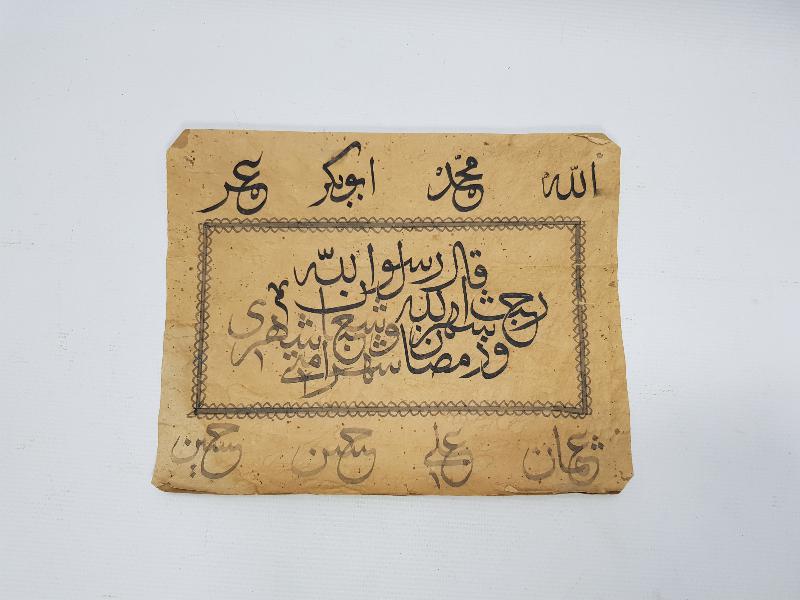 الله محمّد ابوبكر عمر
قال رسول الله
رجب شهر الله
وشعبان شهرى
ورمضان شهر امتى
عثمان على حسن حسين